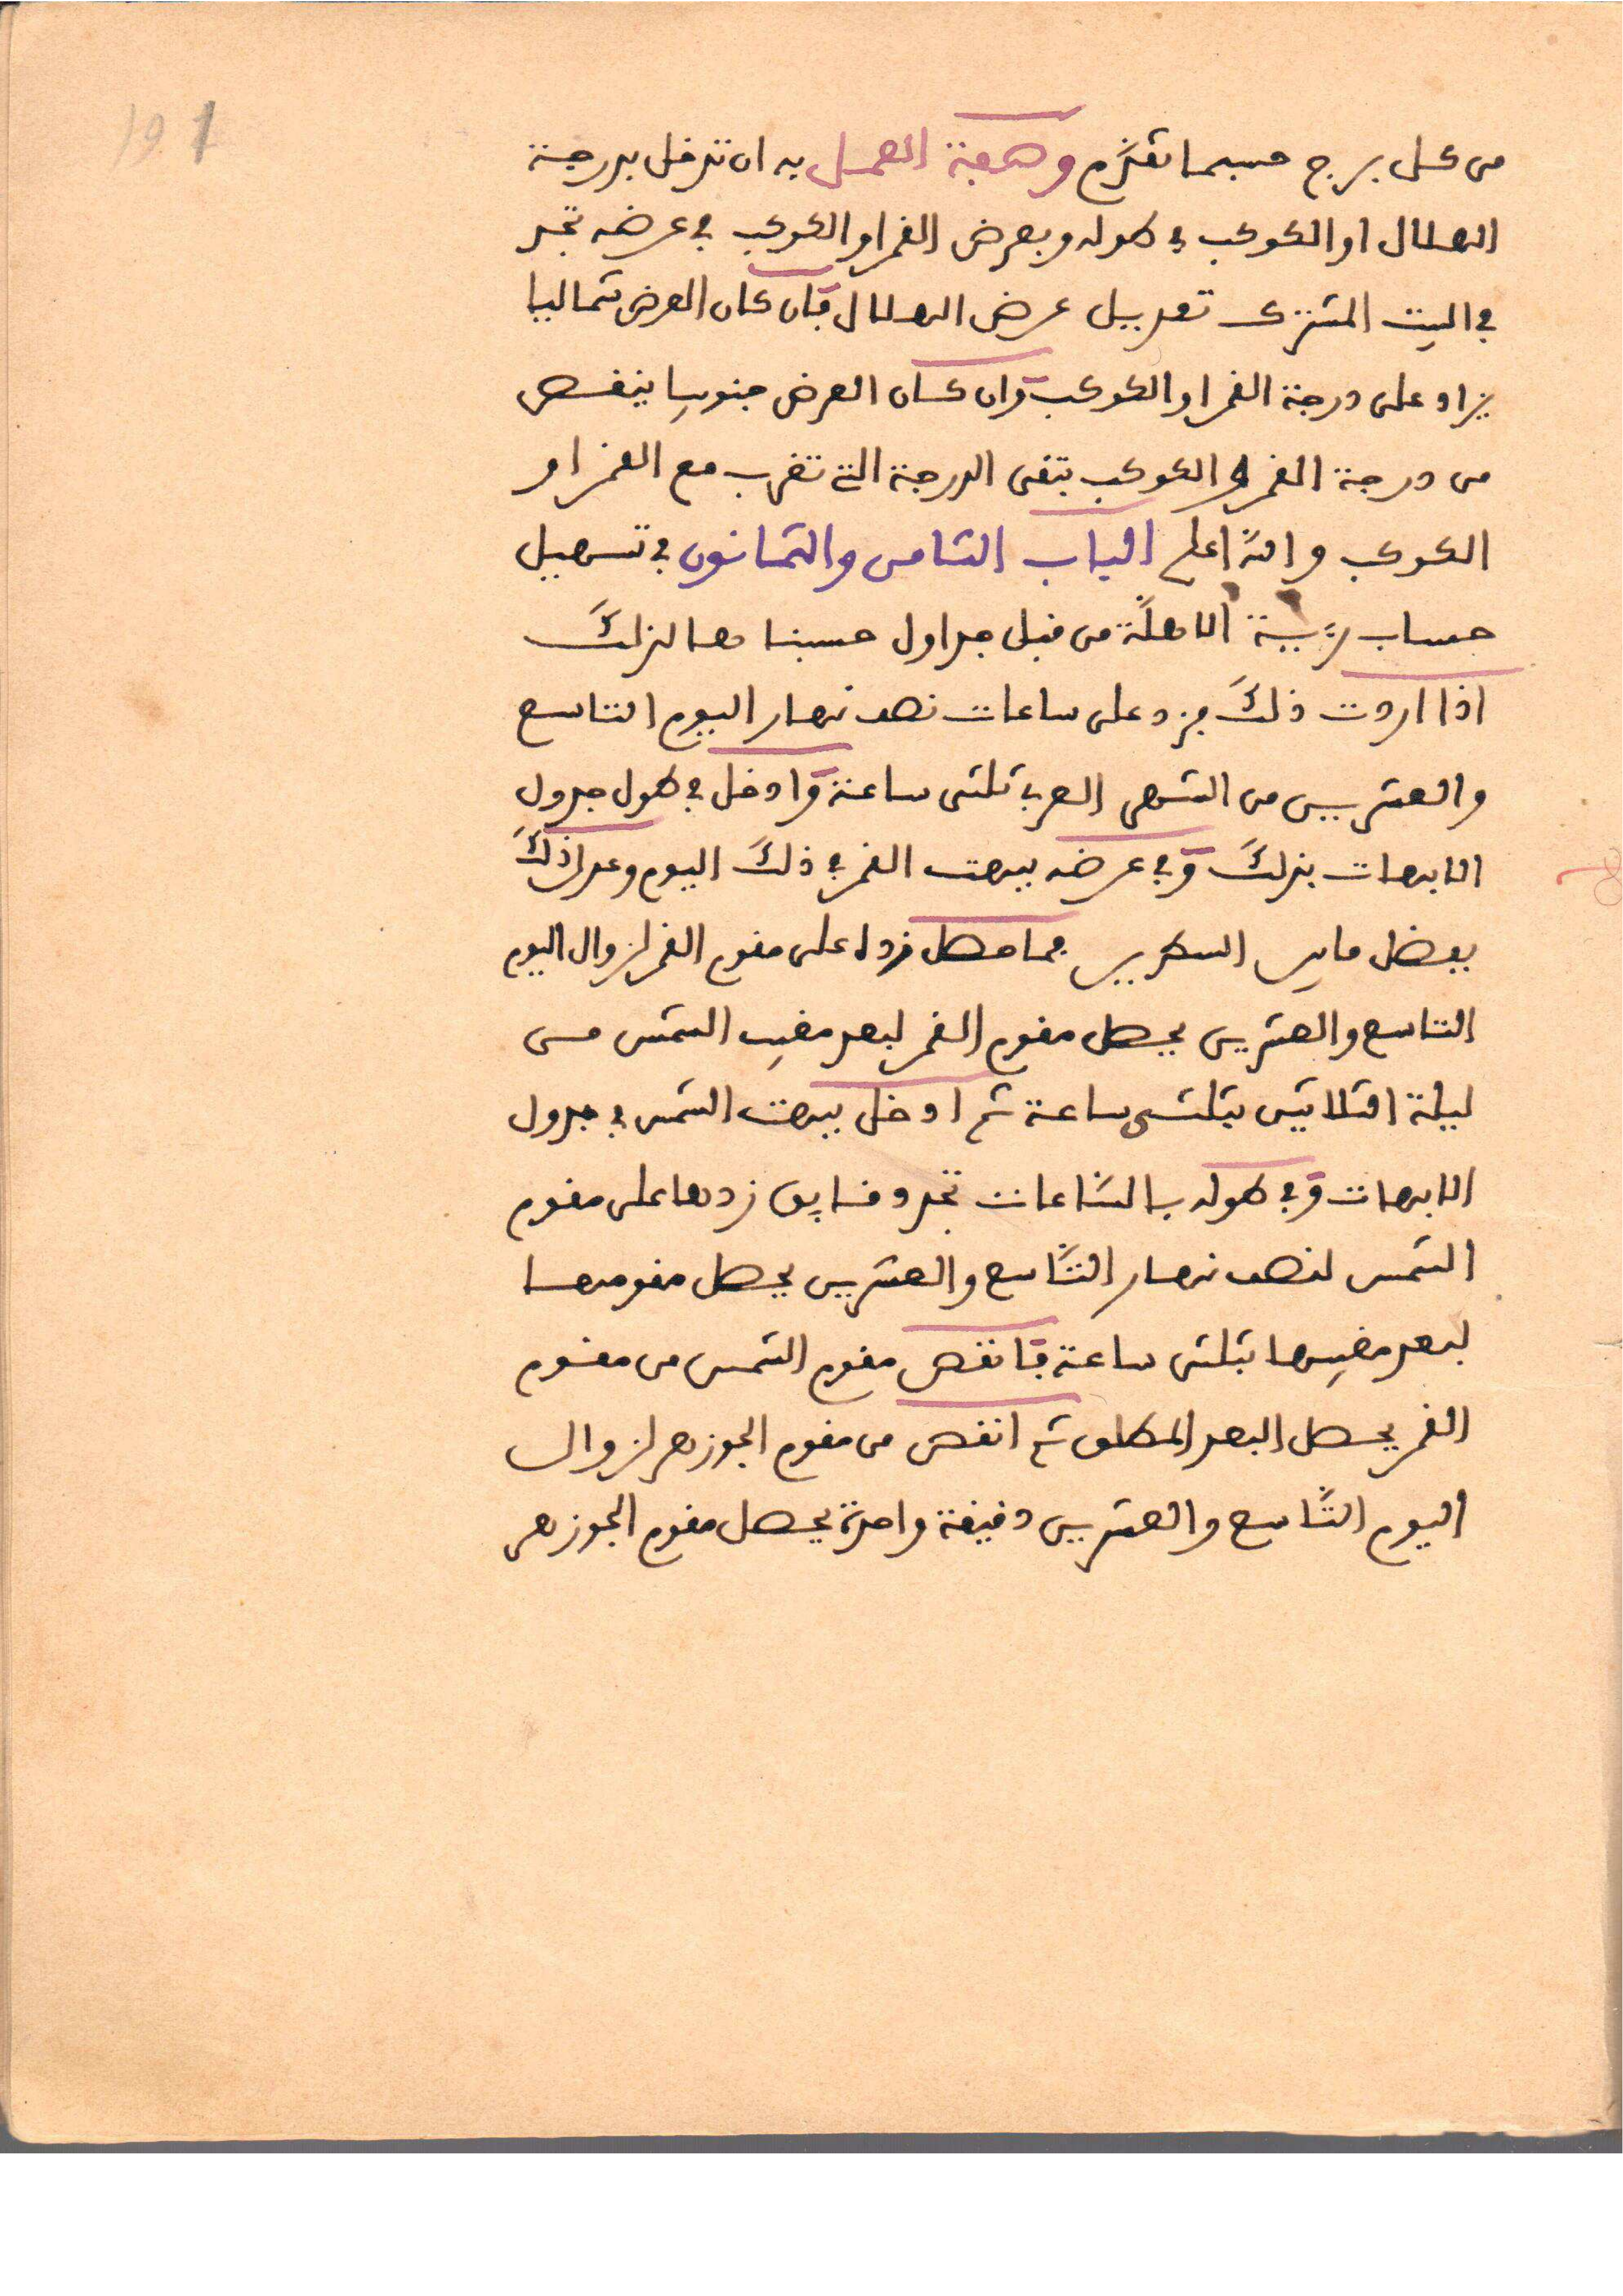 191
من كل برج حسبما تقدَّم وصفة العمل به ان تدخل بدرجة
الهلال او الكوكب في طوله وبعرض القمر او الكوكب في عرضه تجد
في البيت المشترك تعديل عرض الهلال فان كان العرض شماليا
يزاد على درجة القمر او الكوكب وان كان العرض جنوبيا ينقص
من درجة القمر او الكوكب تبقى الدرجة التي تغرب مع القمر او
الكوكب والله اعلم الباب الثامن والثمانون في تسهيل
حساب رؤية الاهلّة من قبل جداول حسبناها لذلك
اذا اردت ذلك فزد على ساعات نصف نهار اليوم التاسع
والعشرين من الشهر العربي ثلثي ساعة وادخل في طول جدول
الابهات بذلك وفي عرضه ببهت القمر في ذلك اليوم وعدل ذلك
بفضل ما بين السطرين فما حصل زده على مقوم القمر لزوال اليوم
التاسع والعشرين يحصل مقوم القمر لبعد مغيب الشمس من
ليلة الثلاثين بثلثي ساعة ثم ادخل ببهت الشمس في جدول
الابهات وفي طوله بالسَّاعات تجد دقايق زدها على مقوم
الشمس لنصف نهار التَّاسع والعشرين يحصل مقومها
لبعد مغيبها بثلثي ساعة فانقص مقوم الشمس من مقوم
القمر يحصل البعد المطلق ثم انقص من مقوم الجوزهر لزوال
اليوم التَّاسع والعشرين دقيقة واحدة يحصل مقوم الجوزهر